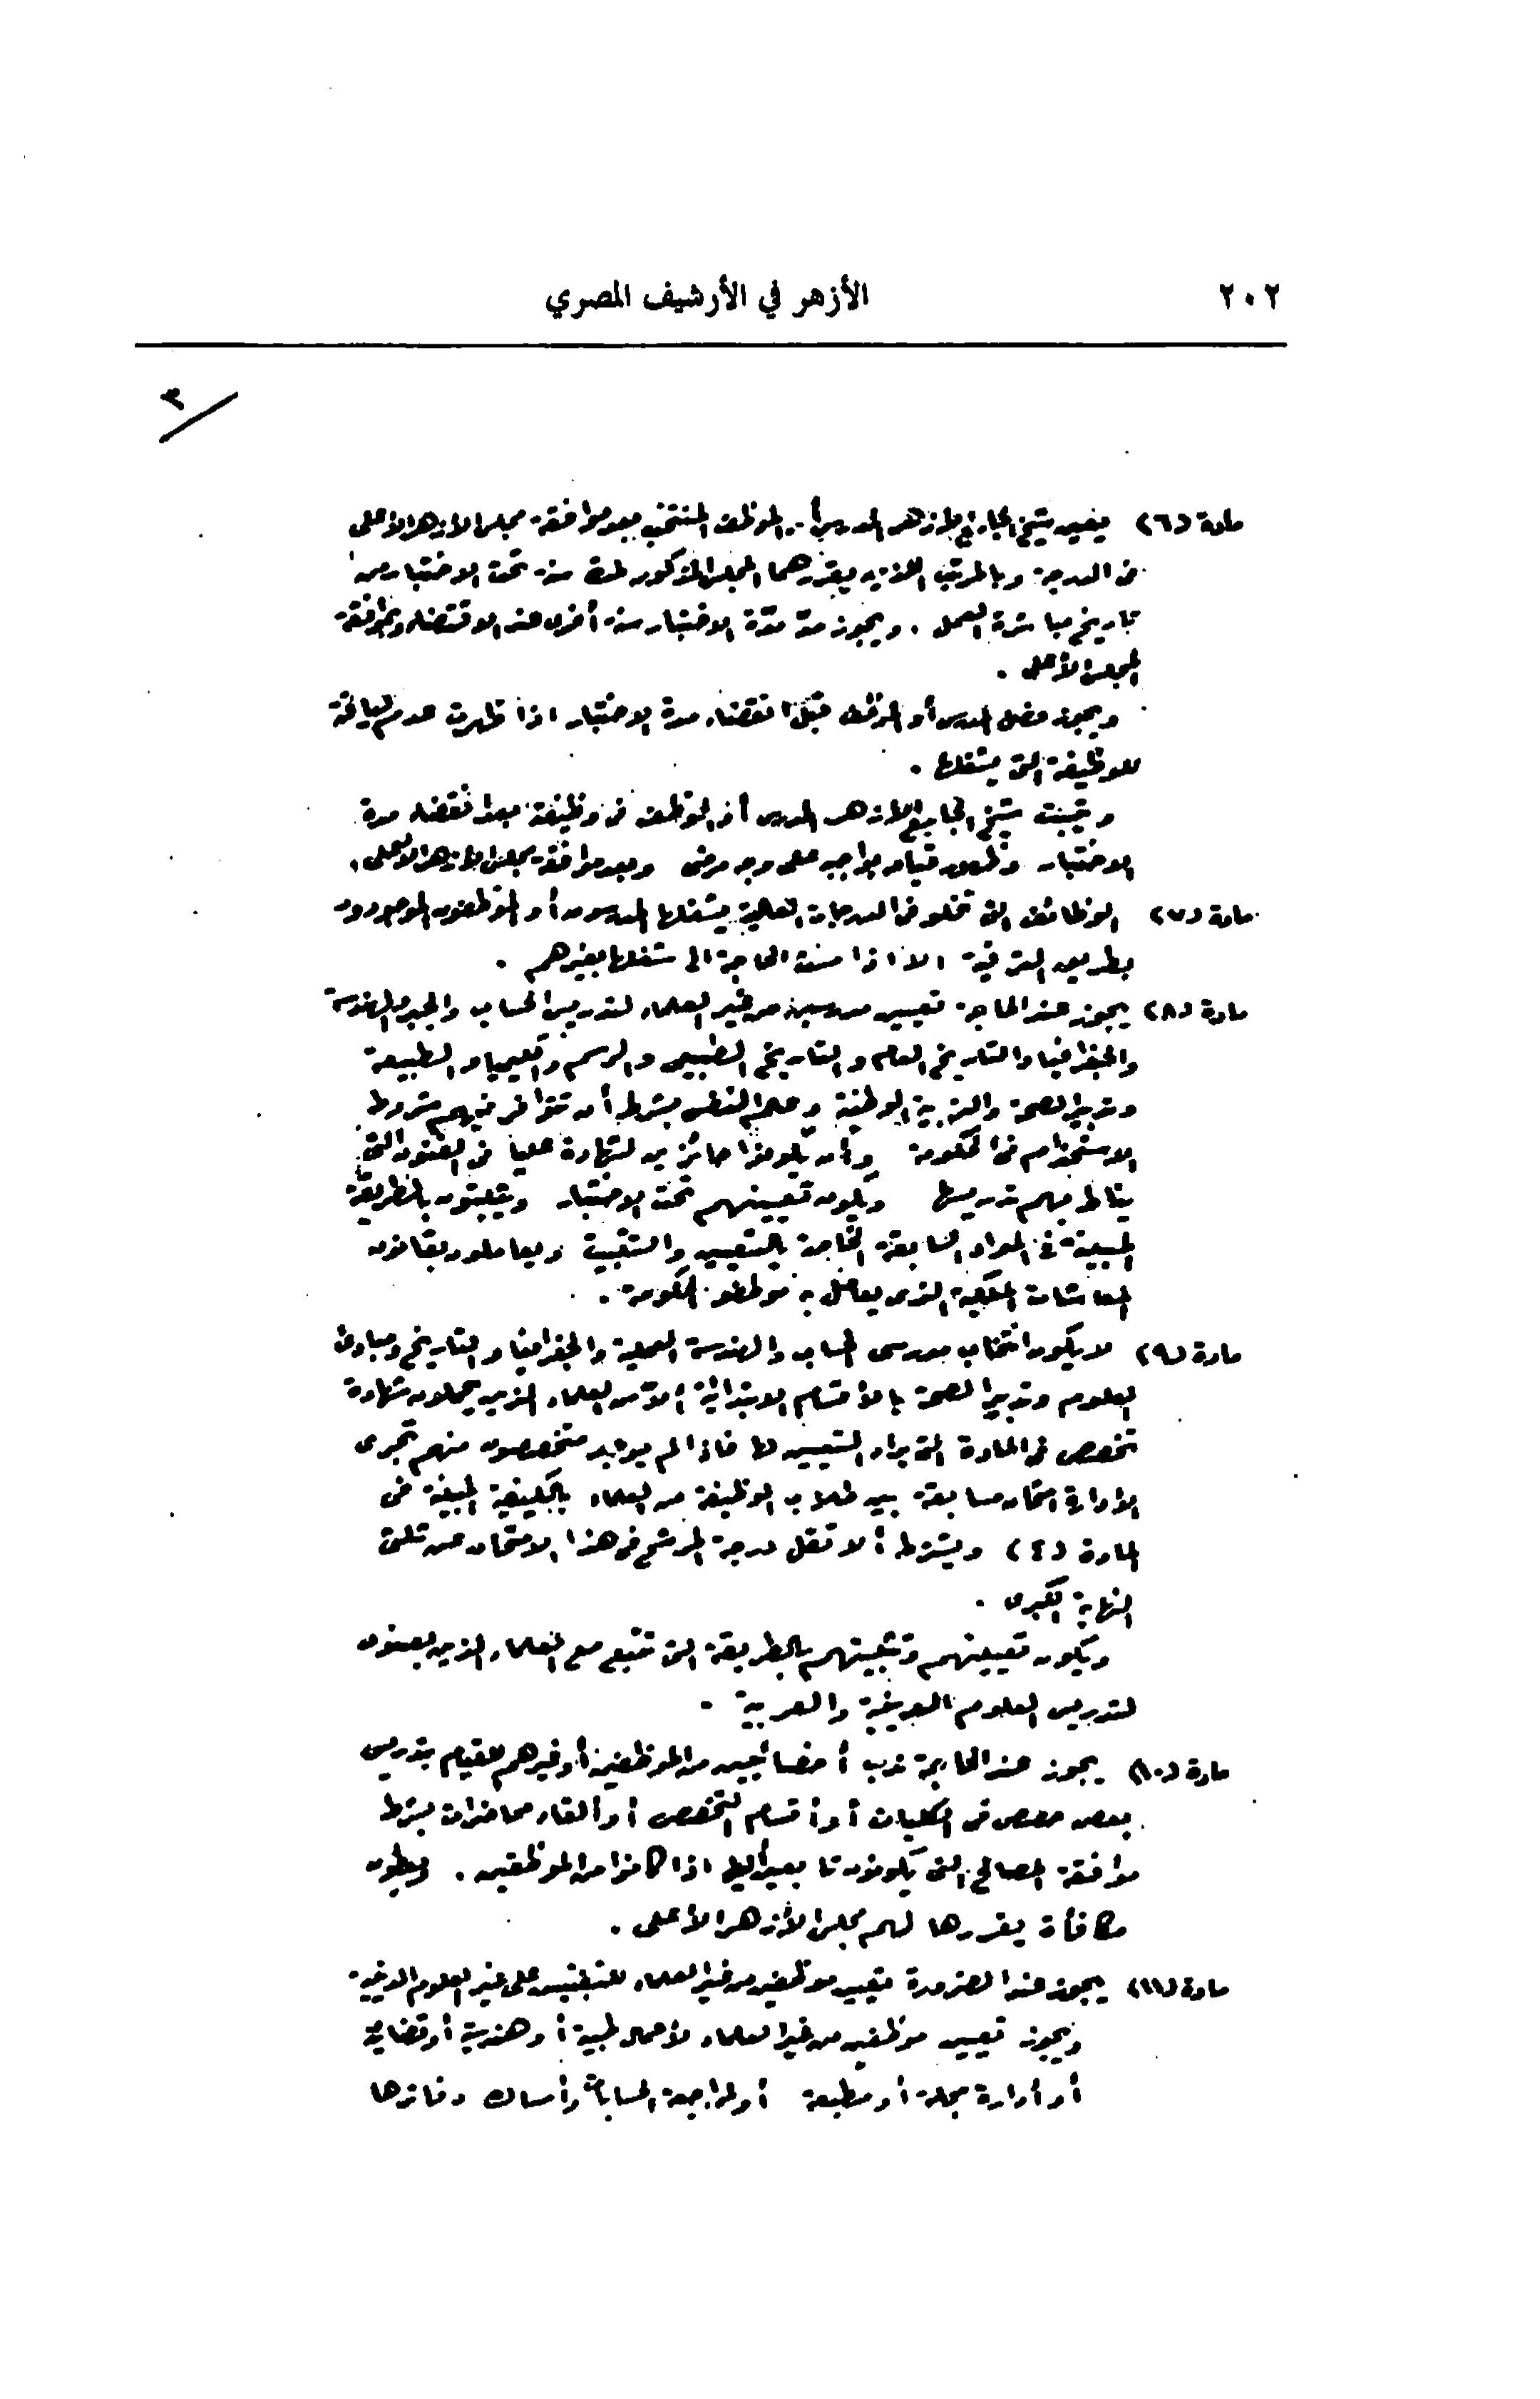 ٢٠٢
الأزهر في الأرشيف المصري
٣
مادة (٦) يعين شيخ الجامع الازهر المدرس أو الموظف المنتخب بعد موافقة مجلس الازهر الأعلى
فى الدرجة وبالمرتب اللذين يقررهما المجلس المذكور لمدة سنة تحت الاختبار من
تاريخ مباشرة العمل . ويجوز مدّ مدّة الاختبار سنة أخرى عند الاقتضاء وبموافقة
المجلس الأعلى .
ويجوز فصل المدرس أو الموظف قبل انقضاء مدة الاختبار اذا ظهرت عدم لياقته
للوظيفة التى يشغلها .
ويثبت شيخ الجامع الازهر المدرس أو الموظف فى وظيفته بعد انقضاء مدة
الاختبار وظهور قيامه بواجبه على وجه مرضى وبعد موافقة مجلس الازهر الأعلى .
مادة (٧) الوظائف التى تخلو فى الدرجات العالية يشغلها المدرسون أو الموظفون الموجودون
بطريق الترقية الا اذا مست الحاجة الى شغلها بغيرهم .
مادة (٨) يجوز عند الحاجة تعيين مدرسين من غير العلماء لتدريس الحساب والجبر والهندسة
والجغرافيا والتاريخ العام والتاريخ الطبيعى والرسم والكيميا والطبيعة
وتدبير الصحة والتربية الوطنية وعلم النفس بشرط أن تتوافر فيهم شروط
الاستخدام فى الحكومة وأن يكونوا حائزين لشهادة عليا فى الفنون التى
يناط بهم تدريسها ويكون تعيينهم تحت الاختبار ويثبتون بالطريقة
المبينة فى المواد السابقة الخاصة بالتعيين والتثبيت ويعاملون بقانون
المعاشات الملكية الذى يعامل به موظفو الحكومة .
مادة (٩) لا يكون انتخاب مدرسى الحساب والهندسة العملية والجغرافيا والتاريخ ومبادئ
العلوم وتدبير الصحة بالأقسام الابتدائية إلاّ من العلماء الذين يحملون شهادة
تخصص فى المادة التى يراد التعيين لها فاذا لم يوجد متخصصون منهم تجرى
الإدارة امتحان مسابقة بين طلاب الوظيفة من العلماء بالكيفية المبينة فى
المادة (٤) ويشترط ألا تقل درجة المرشح فى هذا الامتحان عن ثلثى
النهاية الكبرى .
ويكون تعيينهم وتثبيتهم بالطريقة التى تتبع مع العلماء الذين يعينون
لتدريس العلوم الدينية والعربية .
مادة (١٠) يجوز عند الحاجة ندب أخصائيين من الموظفين أو غيرهم للقيام بتدريس
بعض حصص فى الكليات أو أقسام التخصص أو ألقاء محاضرات بشرط
موافقة المصالح التى يكونون تابعين إليها اذا كانوا من الموظفين . ويعطون
مكافأة يقررها لهم مجلس الأزهر الأعلى .
مادة (١١) يجوز عند الضرورة تعيين موظفين من غير العلماء للتفتيش على غير العلوم الدينية
ويجوز تعيين موظفين من غير العلماء لأعمال طبية أو هندسية أو قضائية
أو أدارة مجلة أو مطبعة أو لمراجعة الحسابات وأمساك دفاترها